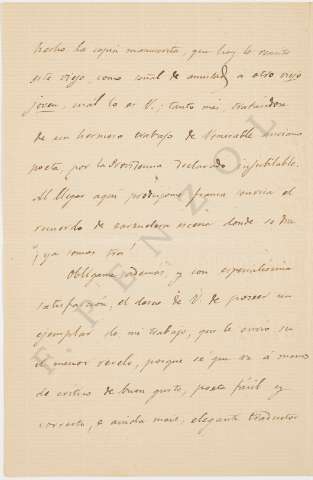 hecho la copia manuscrita, que hoy le remite
este viejo, como señal de amistad, a otro viejo
joven, cual lo es V.; tanto más, tratándose
de un hermoso trabajo de venerable anciano
poeta, por la Providencia declarado
Al llegar aquí
recuerdo de escena donde se dice
¡ya somos tres!
Oblígame además, y con especialísima
satisfacción, el deseo de V. de poseer un
ejemplar de mi trabajo, que le envío sin
el menor recelo, porque sé que va á manos
de crítico de buen gusto, poeta fácil y
correcto, e ainda mais, elegante traductor
F. PENZOL